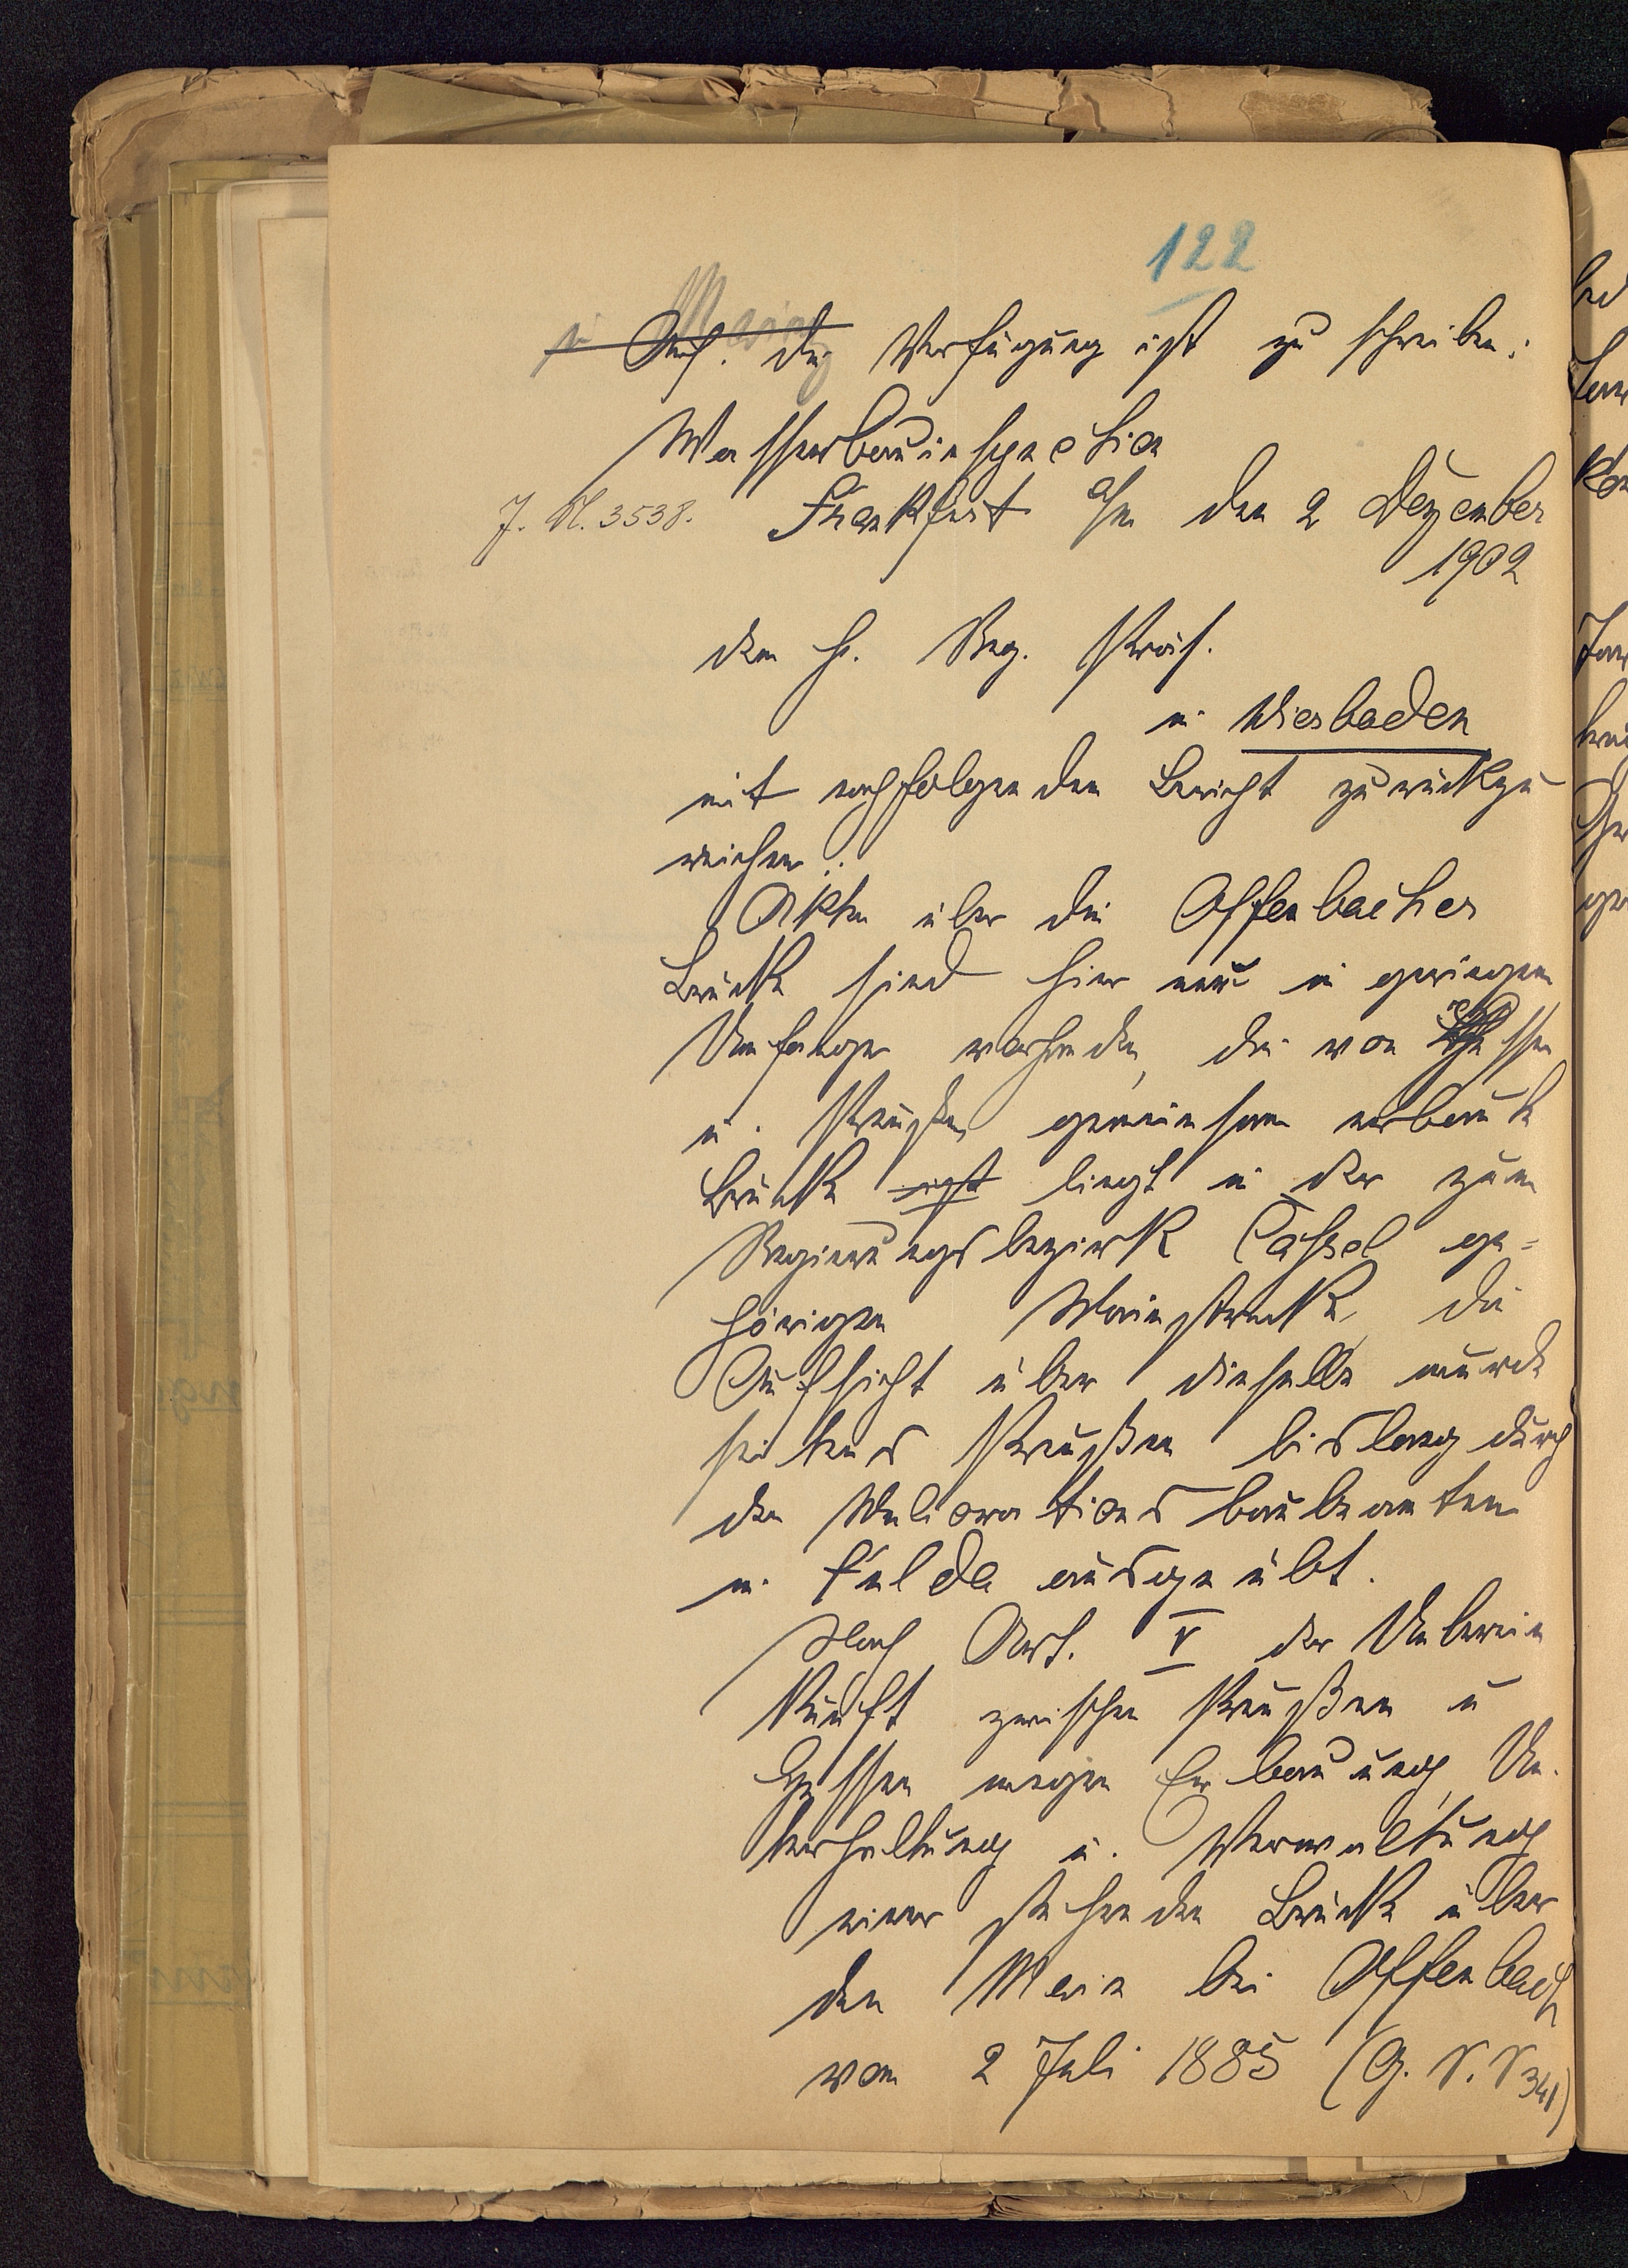 122
Auf die Verfügung ist zu schreiben:
Wasserbauinspection
J. N. 3538. Frankfurt a/m den 2 Dezember
1902
dem H. Reg. Präs.
in Wiesbaden
mit nachfolgendem Bericht zurückzu
reichen:
Akten über die Offenbacher
Brücke sind hier nur in geringem
Umfange vorhanden, die von Hessen
u. Preußen gemeinsam erbaute
Brücke liegt in der zum
Regierungsbezirk Cassel ge-
hörigen Mainstrecke, die
Aufsicht über dieselbe wurde
seitens Preußen bislang durch
den Meliorationsbaubeamten
in Fulda ausgeübt.
Nach Art. V derUeberein
kunft zwischen Preußen u
Hessen wegen Erbauung, Un-
terhaltung u. Verwaltung
einer stehenden Brücke über
den Main bei Offenbach
vom 2 Juli 1885 (G. S. S 341)